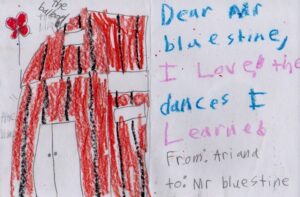 the
Dear Mr
bluestine,
I Loved the
dances I
Learned
From: Ariana
to: Mr bluestine